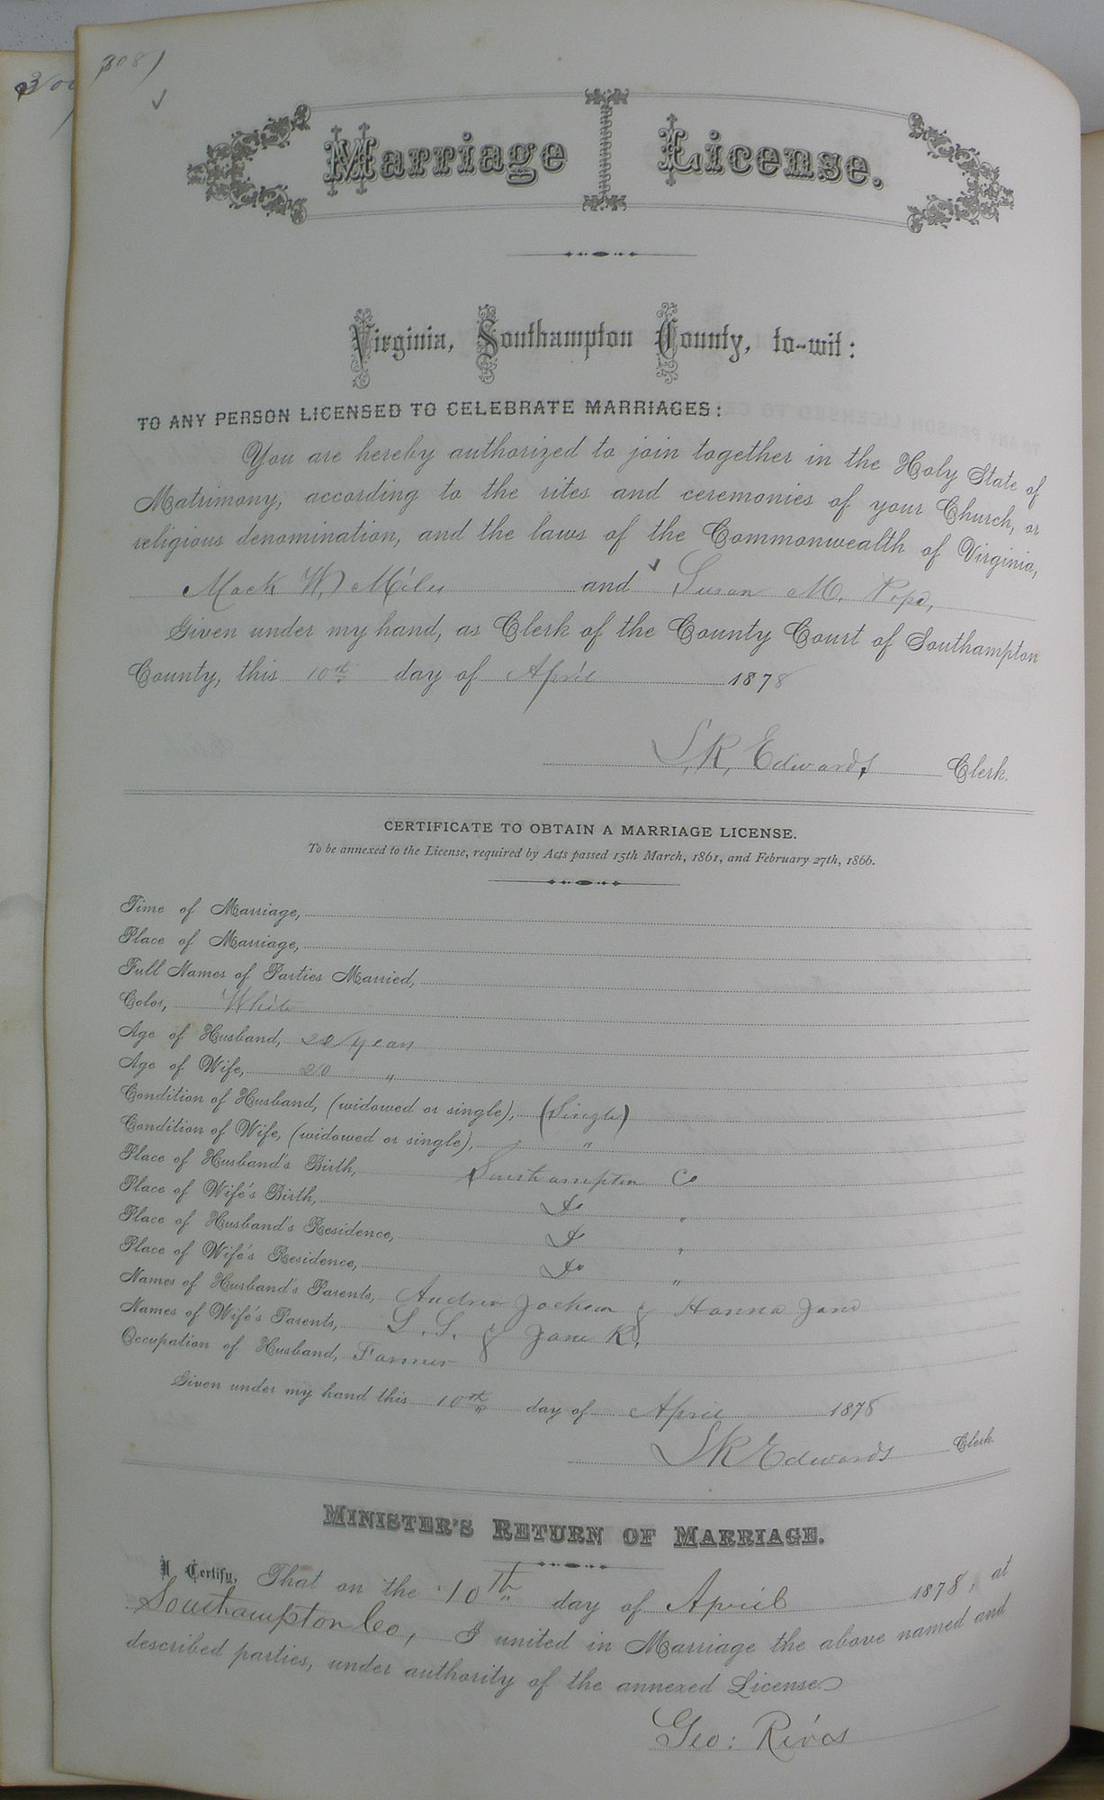 308
Marriage License.
Virginia, Southampton County, to-wit:
TO ANY PERSON LICENSED TO CELEBRATE MARRIAGES:
You are hereby authorized to join together in the Holy State of
Matrimony, according to the rites and ceremonies of your Church, or
religious denomination, and the laws of the Commonwealth of Virginia,
Mack W. Miles and Susan M. Pope,
Given under my hand, as Clerk of the County Court of Southampton
County, this 10th day of April 1878
S. R. Edwards, Clerk.
CERTIFICATE TO OBTAIN A MARRIAGE LICENSE.
To be annexed to the License, required by Acts passed 15th March, 1861, and February 27th, 1866.
Time of Marriage,
Place of Marriage,
Full Names of Parties Married,
Color, White
Age of Husband, years
Age of Wife, 20 "
Condition of Husband, (widowed or single), (Single)
Condition of Wife, (widowed or single), "
Place of Husband's Birth, Southampton Co
Place of Wife's Birth, Do "
Place of Husband's Residence, Do "
Place of Wife's Residence, Do "
Names of Husband's Parents, Andrew Jackson & Hanna Jane
Names of Wife's Parents, & Jane R.
Occupation of Husband, Farmer
Given under my hand this 10th day of April 1878
S R Edwards Clerk.
MINISTER'S RETURN OF MARRIAGE.
I Certify, That on the 10th day of April 1878, at
Southampton Co, I united in Marriage the above named and
described parties, under authority of the annexed License
Geo: Rives